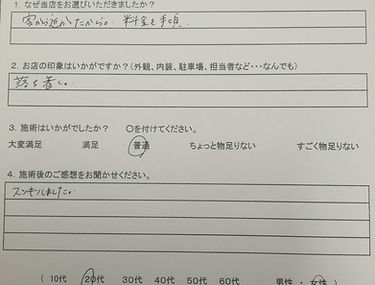 1. なぜ当店をお選びいただきましたか？
家から近かたから。料金も手頃
2. お店の印象はいかがですか？(外観、内装、駐車場、担当者など・・・なんでも)
落ち着く。
3. 施術はいかがでしたか？　○を付けてください。
大変満足　満足　普通　ちょっと物足りない　すごく物足りない
4. 施術後のご感想をお聞かせください。
スッキリしました。
( 10代　20代　30代　40代　50代　60代　男性・女性)